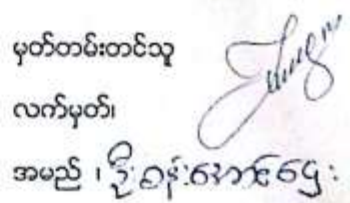 မှတ်တမ်းတင်သူ
လက်မှတ်၊
အမည် ၊ ဦးဝန်းအောင်ဌေး